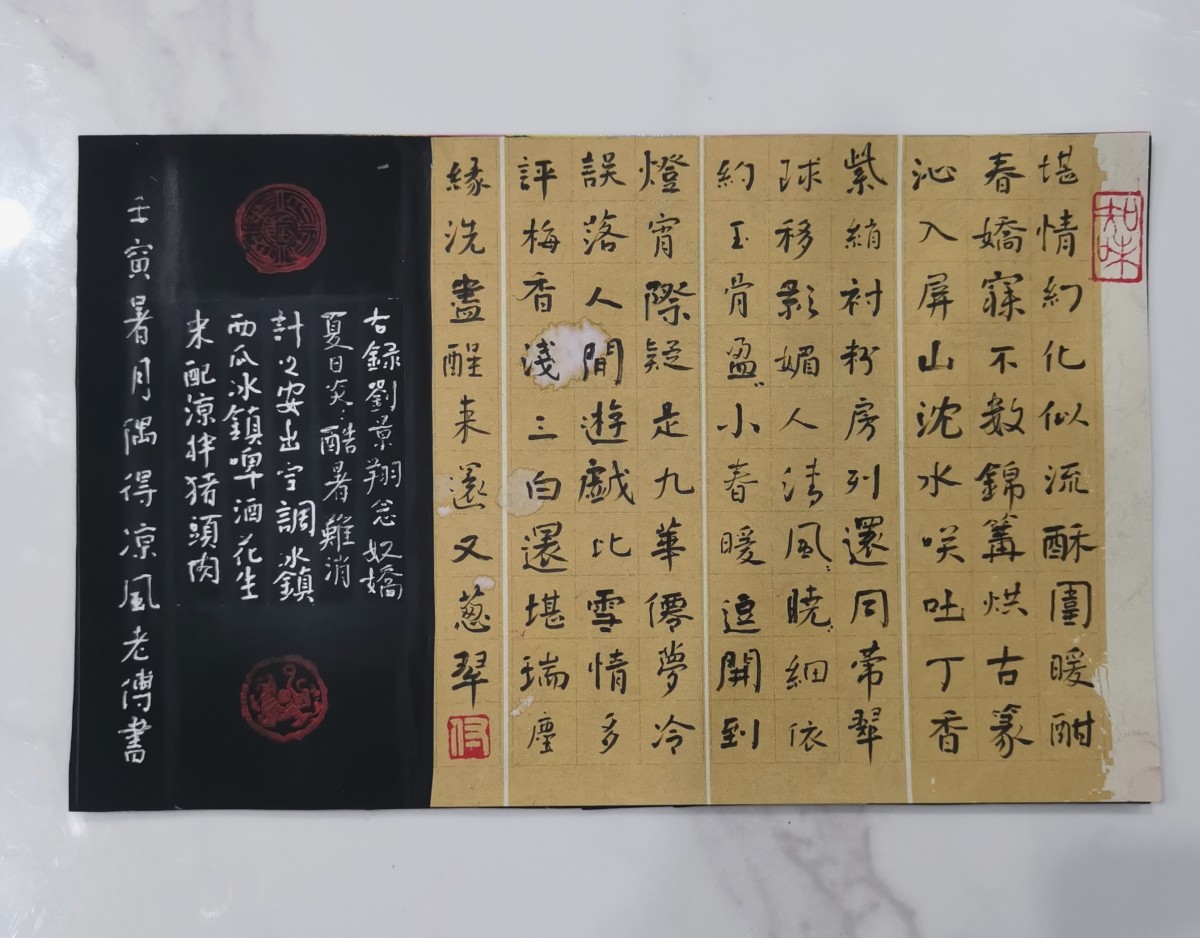 知味
堪情幻化似流酥團暖酣
春嬌寐不數錦篝烘古篆
沁入屏山沈水咲吐丁香
紫綃衬粉房列還同蒂翠
球移影媚人清風曉細依
約玉骨盈〻小春暖逗開到
燈宵際疑是九華僊夢冷
誤落人間遊戲比雪情多
評梅香淺三白還堪瑞塵
緣洗盡醒来還又葱翠
右錄劉景翔念奴嬌
夏日炎〻酷暑難消
計之安出空調冰鎮
西瓜冰鎮啤酒花生
米配凉拌猪頭肉
壬寅暑月偶得凉風老傅書